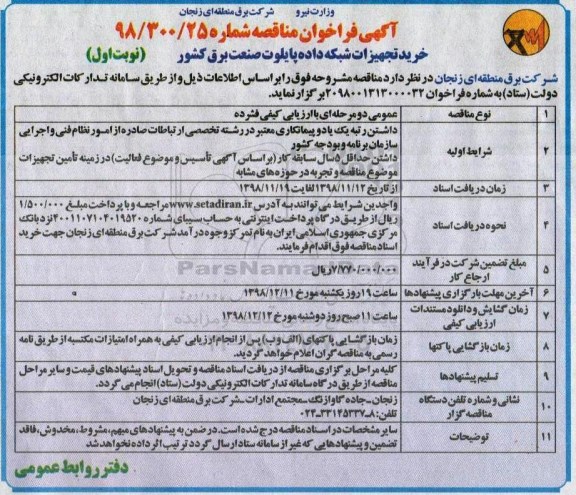 وزارت نیرو شرکت برق منطقه ای زنجان
آگهی فراخوان مناقصه شماره ۹۸/۳۰۰/۲۵
خرید تجهیزات شبکه داده پایلوت صنعت برق کشور (نوبت اول)
شرکت برق منطقه ای زنجان در نظر دارد مناقصه مشروحه فوق را براساس اطلاعات ذیل و از طریق سامانه تدارکات الکترونیکی
دولت (ستاد) به شماره فراخوان ۲۰۹۸۰۰۱۳۱۳۰۰۰۰۳۲ برگزار نماید.
۱ نوع مناقصه عمومی دو مرحله ای با ارزیابی کیفی فشرده
۲ شرایط اولیه داشتن رتبه یک یا دو پیمانکاری معتبر در رشته تخصصی ارتباطات صادره از امور نظام فنی و اجرایی
سازمان برنامه و بودجه کشور
داشتن حداقل ۵ سال سابقه کار (براساس آگهی تأسیس و موضوع فعالیت) در زمینه تأمین تجهیزات
موضوع مناقصه و تجربه در حوزه های مشابه
۳ زمان دریافت اسناد از تاریخ ۱۳۹۸/۱۱/۱۲ لغایت ۱۳۹۸/۱۱/۱۹
۴ نحوه دریافت اسناد واجدین شرایط می توانند به آدرس www.setadiran.ir مراجعه و با پرداخت مبلغ ۱/۵۰۰/۰۰۰
ریال از طریق درگاه پرداخت اینترنتی به حساب سیبای شماره ۴۰۰۱۱۰۷۱۰۴۰۱۹۵۲۰ نزد بانک
مرکزی جمهوری اسلامی ایران به نام تمرکز وجوه درآمد شرکت برق منطقه ای زنجان جهت خرید
اسناد مناقصه فوق اقدام فرمایند.
۵ مبلغ تضمین شرکت در فرآیند
ارجاع کار ۷/۷۷۰/۰۰۰/۰۰۰ ریال
۶ آخرین مهلت بارگزاری پیشنهادها ساعت ۱۹ روز یکشنبه مورخ ۱۳۹۸/۱۲/۱۱
۷ زمان گشایش و دانلود مستندات
ارزیابی کیفی ساعت ۱۱ صبح روز دوشنبه مورخ ۱۳۹۸/۱۲/۱۲
۸ زمان بازگشایی پاکتها زمان بازگشایی پاکتهای (الف و ب) پس از انجام ارزیابی کیفی به همراه امتیازات مکتسبه از طریق نامه
رسمی به مناقصه گران اعلام خواهد گردید.
۹ تسلیم پیشنهادها کلیه مراحل برگزاری مناقصه از دریافت اسناد مناقصه و تحویل اسناد پیشنهادهای قیمت و سایر مراحل
مناقصه از طریق درگاه سامانه تدارکات الکترونیکی دولت (ستاد) انجام می گردد.
۱۰ نشانی و شماره تلفن دستگاه
مناقصه گزار زنجان - جاده گاوازنگ - مجتمع ادارات - شرکت برق منطقه ای زنجان
تلفن: ۸-۰۲۴-۳۳۱۴۵۳۳۷
۱۱ توضیحات سایر مشخصات در اسناد مناقصه درج شده است. در ضمن به پیشنهادهای مبهم، مشروط، مخدوش، فاقد
تضمین و پیشنهادهایی که غیر از سامانه ستاد ارسال گردد ترتیب اثر داده نخواهد شد
دفتر روابط عمومی